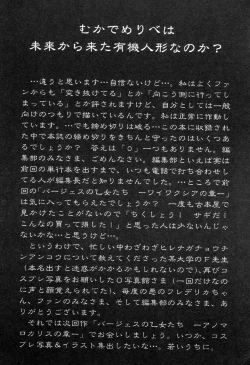 むかでめりべは
未来から来た有機人形なのか?
…違うと思います…自信ないけど…。私はよくファ
ンからも「突き抜けてる」とか「向こう側に行ってし
まっている」とか評されますけど、自分としては一般
向けのつもりで描いているんです。私は正常に作動し
ています。…でも締め切りは破る…この本に収録され
た中で本誌の締め切りをきちんと守ったのはいくつあ
るでしょうか? 答えは「0」。一つもありません。編
集部のみなさま、ごめんなさい。編集部といえば実は
前回の単行本を出すまで、いつも電話で打ち合わせし
てる人が編集長だと知りませんでした。…ところで前
回の「バージェスの乙女たち ーワイワクシアの章ー」
は気に入ってもらえたでしょうか? 一度も古本屋で
見かけたことがないので「ちくしょう! サギだ!
こんなの買って損した!」と思った人は少ないんじゃ
ないかな…と思うけど…。
というわけで、忙しい中わざわざヒレナガチョウチ
ンアンコウについて教えてくださった某大学のF先生
(本名出すと迷惑がかかるかもしれないので)、再びコ
スプレ写真をお願いしたO写真館さま(一回だけなの
に声と顔覚えられてた)、毎度の悪のフレデリカちゃ
ん、ファンのみなさま、そして編集部のみなさま、あ
りがとうございます。
それでは次回作「バージェスの乙女たち ーアノマ
ロカリスの章ー」でお会いしましょう。いつか、コス
プレ写真&イラスト集出したいな…。若いうちに。